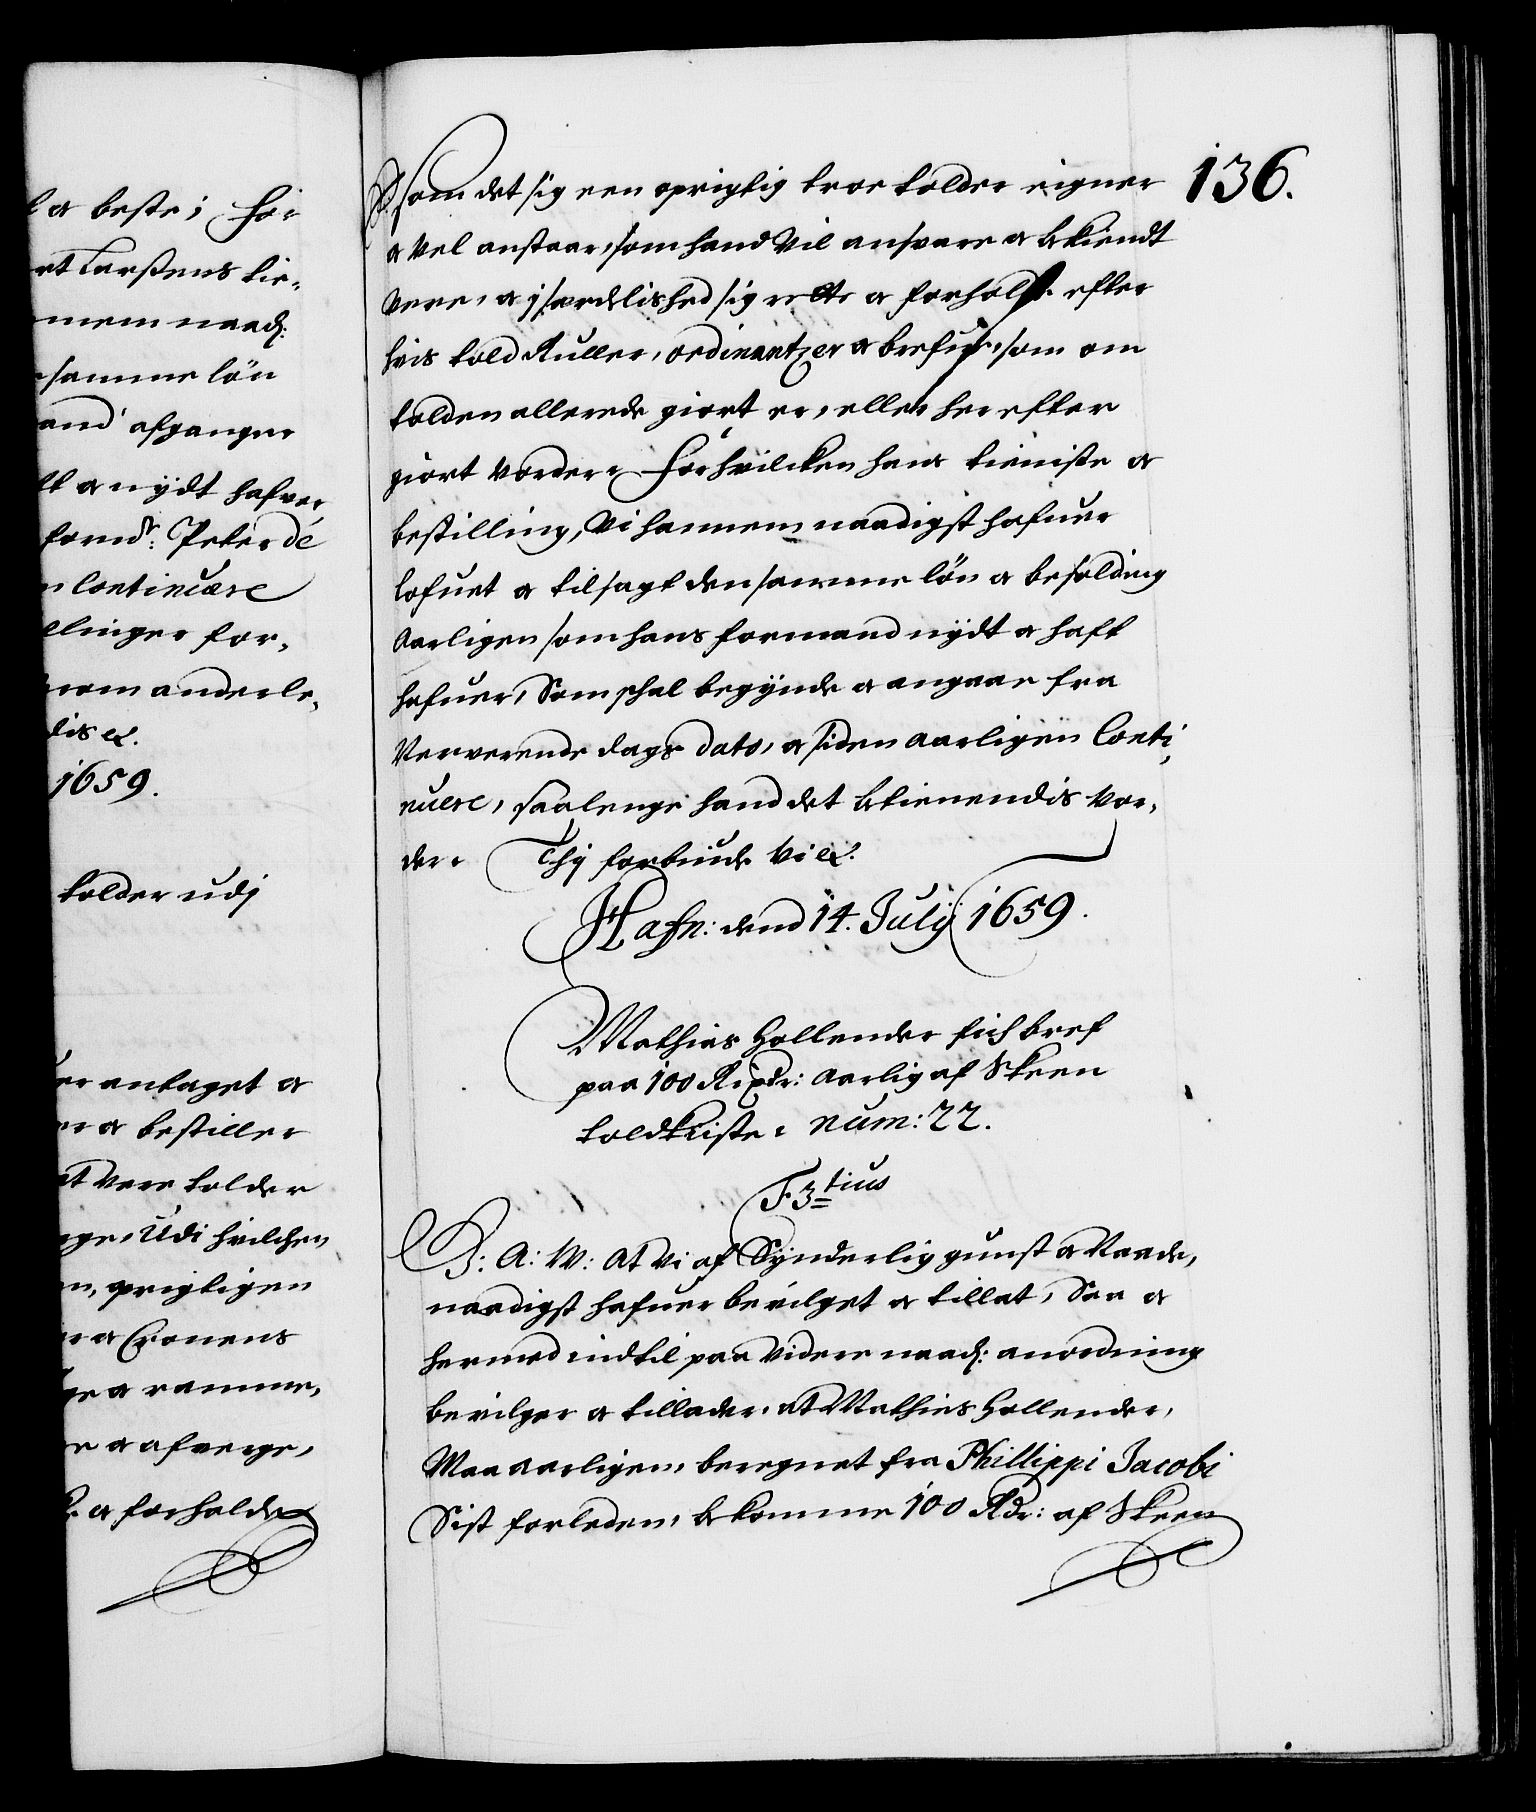 l oc beste; for
rt Carstens tie-
nem naad:
samme løn
and afganger
tt oc nydt hafver
fornd: Peter de
Continuere
elinger for-
anderle-
dis &.
1659.
tolder udj
er antaget oc
er oc bestiller
at vere tolder
Udi hvilchen
oprigtigen
oc Cronens
oc ramme,
oc afverge,
oc forholde
136.
som det sig een oprigtig troe tolder eigner
oc vel anstaar, som hand vil ansvare oc bekiendt
vere, oc j særdelished sig rette oc forholde efter
hvis told Ruller, ordinantzer oc brefue, som om
tolden allerede giort er, eller her efter
giort vorder. For hvilcken hans tieniste oc
bestilling, Vi hannem naadigst hafuer
lofuet oc tilsagt den samme løn oc besolding
Aarligen som hans formand nydt oc haft
hafuer, Som schal begynde oc angaae fra
Nerverende dags dato, oc siden aarligen Conti-
nuere, saalenge hand det betienendis vor-
der. Thj forbiude Vi &.
Hafn: dend 14. July 1659.
Mathias Hollender fich bref
paa 100 Rixdr: aarlig af Skeen
toldkiste. num: 22.
F. 3tius
G: A: W: At Vi af Synderlig gunst oc Naade,
naadigst hafuer bevilget oc tillat, Saa oc
hermed indtil paa videre naad: anordning
bevilger oc tillader, at Mathies Hollender,
Maa aarligen, beregnet fra Phillippi Jacobi
Sist forleden, bekomme 100 Rdr: af Skeen